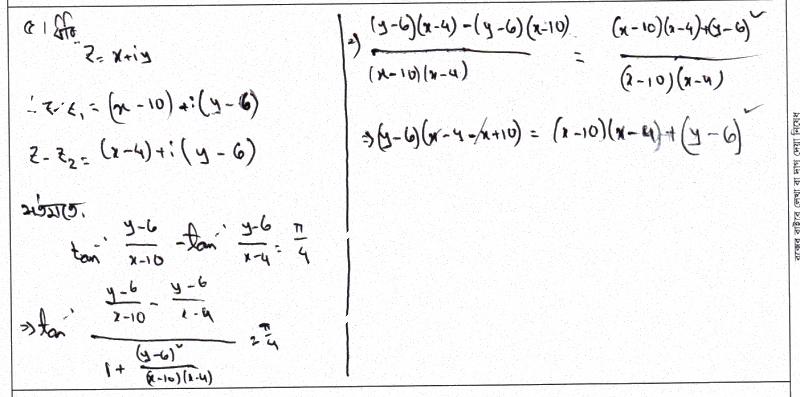 ৫। ধরি,
z = x+iy
∴ z-z₁ = (x-10)+i(y-6)
z-z₂ = (x-4)+i(y-6)
শর্তমতে,
tan⁻¹ (y-6)/(x-10) - tan⁻¹ (y-6)/(x-4) = π/4
⇒ tan⁻¹ ((y-6)/(x-10) - (y-6)/(x-4)) / (1 + (y-6)²/((x-10)(x-4))) = π/4
⇒ ((y-6)(x-4)-(y-6)(x-10)) / ((x-10)(x-4)) = ((x-10)(x-4)+(y-6)²) / ((x-10)(x-4))
⇒ (y-6)(x-4-x+10) = (x-10)(x-4)+(y-6)²
বক্সের বাইরে লেখা বা দাগ দেয়া নিষেধ